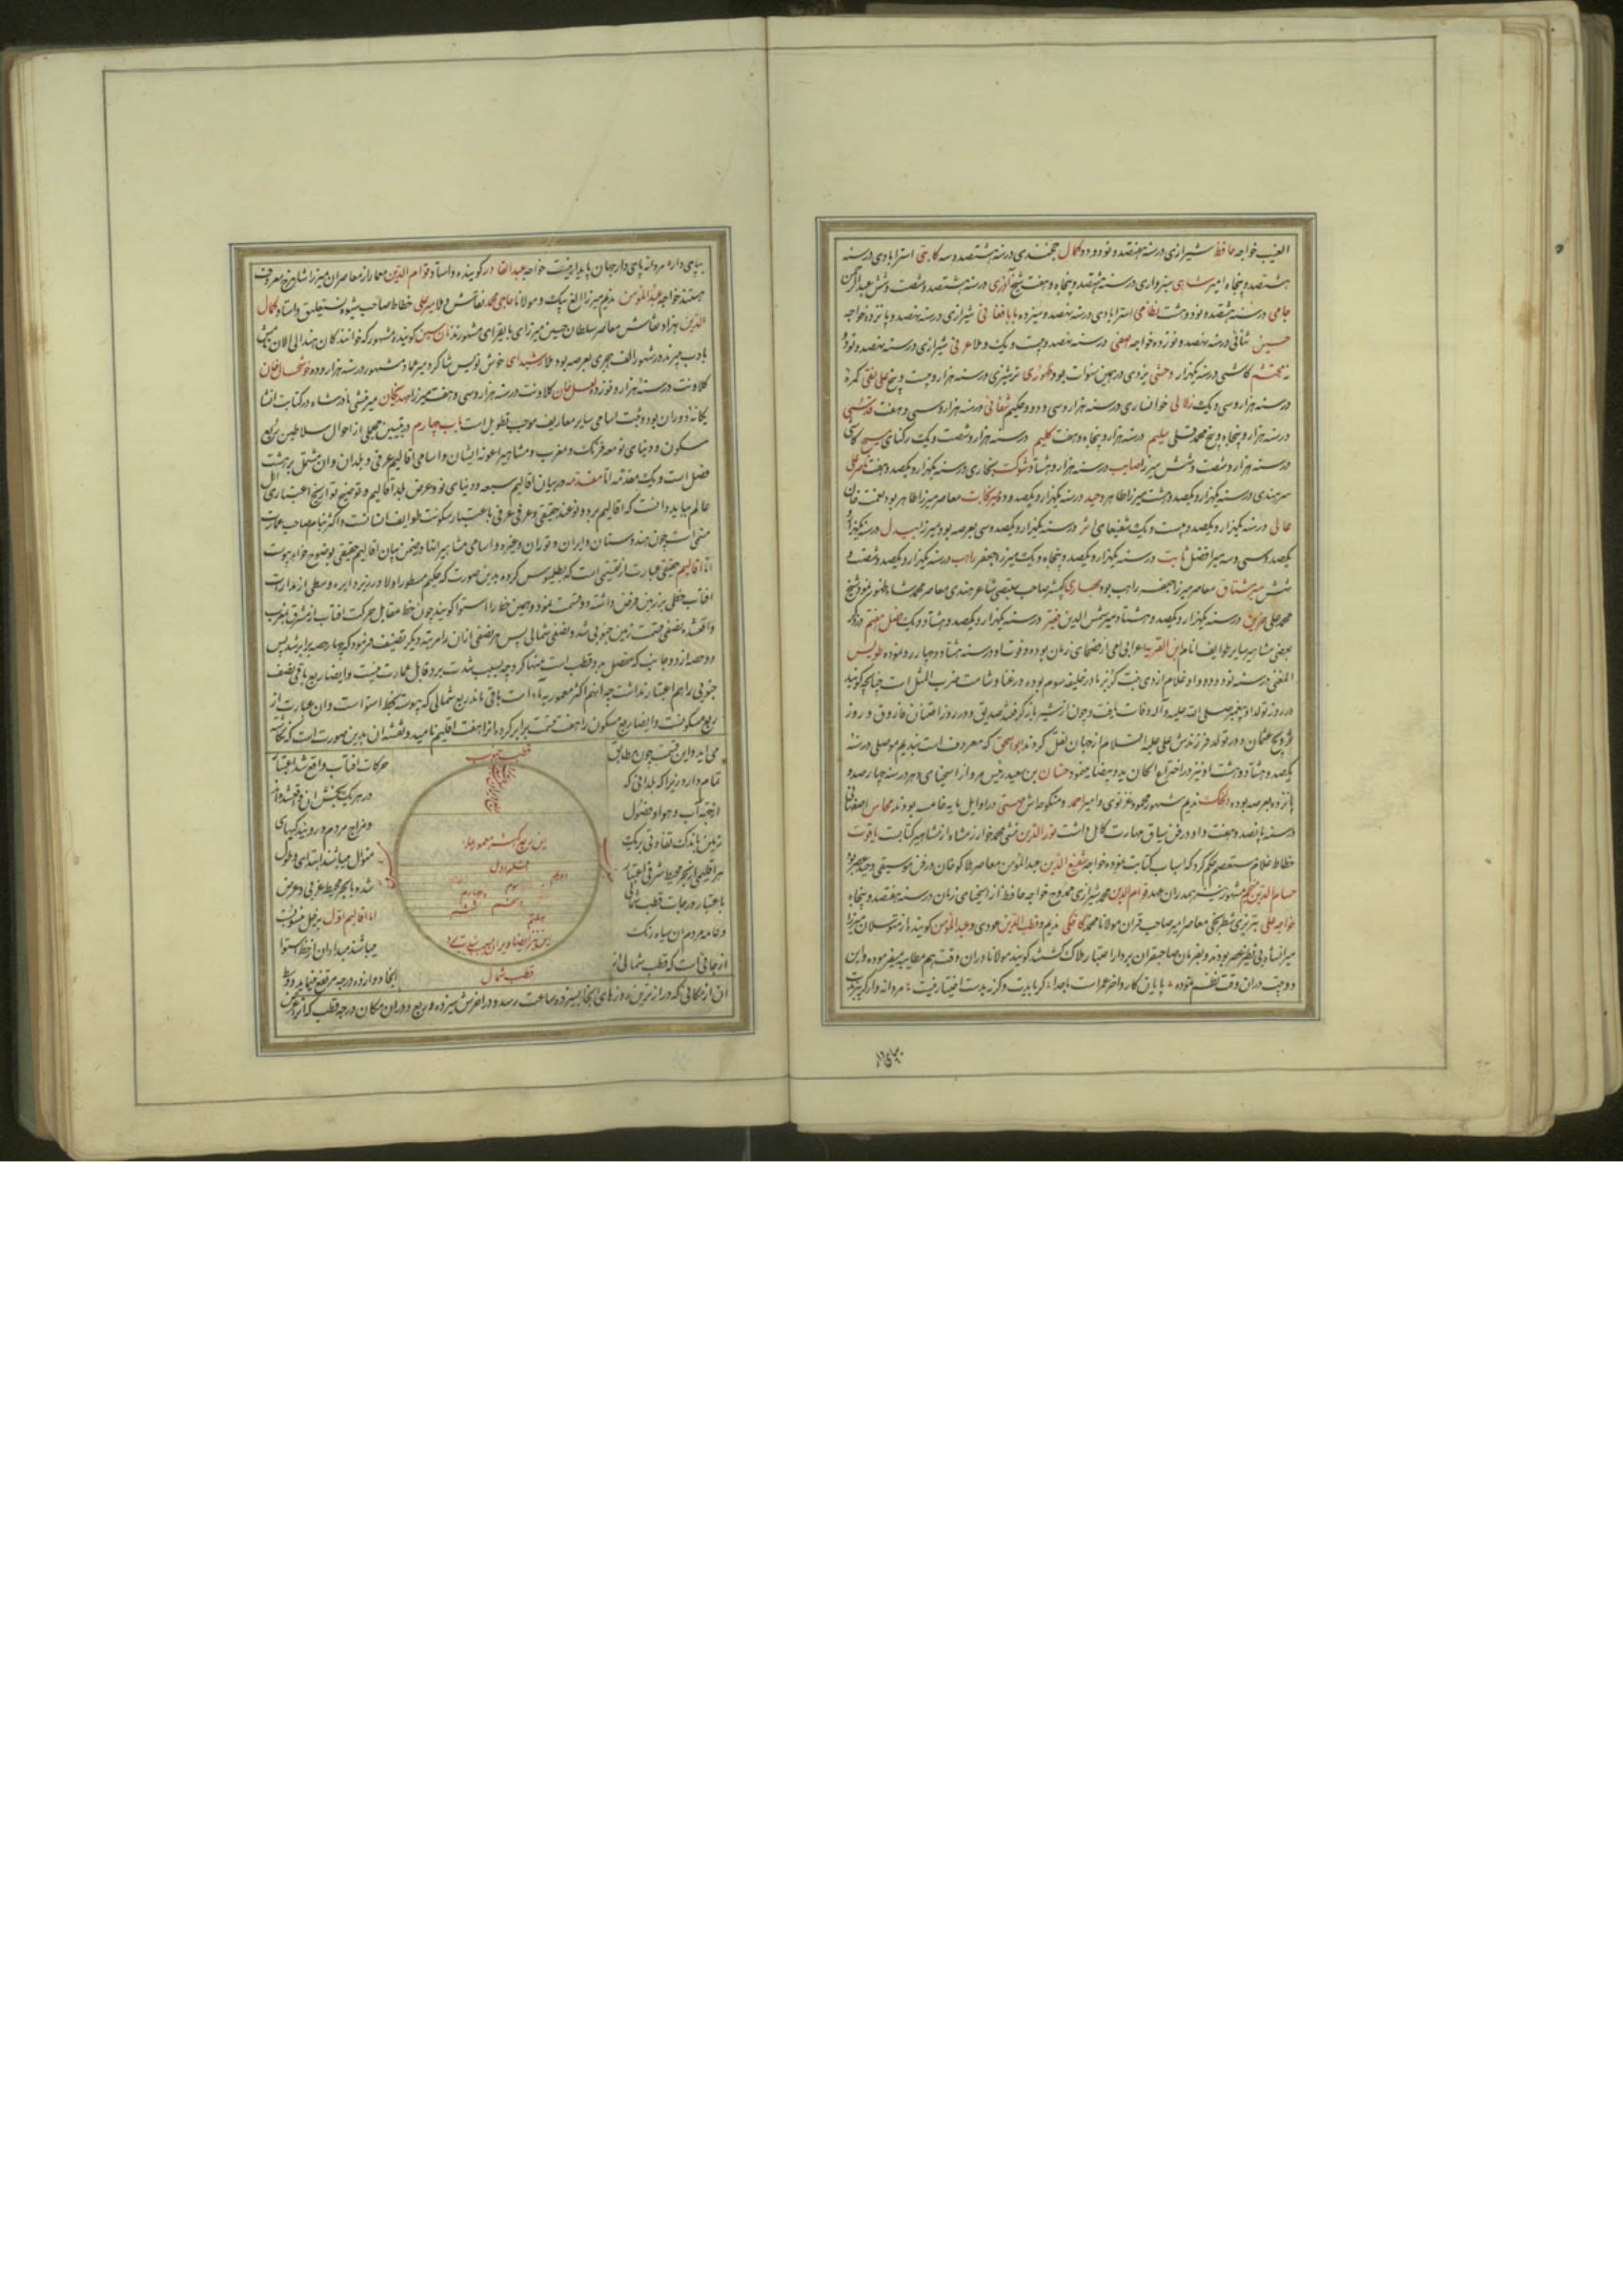 الغیب خواجه حافظ شیرازی درسنه هفتصد و نود و دو کمال خجندی درسنه هشتصد و سه کاتبی استرابادی درسنه
هشتصد و پنجاه امیر شاهی سبزواری درسنه هشتصد و پنجاه و هفت شیخ آذری درسنه هشتصد و شصت و شش عبدالرحمن
جامی درسنه هشتصد و نود و هشت نظامی استرابادی درسنه نهصد و بابا فغانی شیرازی درسنه نهصد و خواجه
حسین ثنائی درسنه نهصد و نوزده خواجه آصفی درسنه نهصد و بیست و یک و ملا عرفی شیرازی درسنه نهصد و نود و
نه محتشم کاشی درسنه یکهزار وحشی یزدی در همین سنوات بود ظهوری ترشیزی درسنه هزار و بیست و پنج علی نقی کمره
درسنه هزار و سی و یک زلالی خوانساری درسنه هزار و سی و دو و حکیم شفائی درسنه هزار و سی و هفت
درسنه هزار و پنجاه و پنج محمد قلی سلیم درسنه هزار و پنجاه و هفت کلیم درسنه هزار و شصت و یک رکنای مسیح کاشی
درسنه هزار و شصت و شش میرزا صایب درسنه هزار و هشتاد شوکت بخاری درسنه یکهزار و یکصد و هفت ناصر علی
سرهندی درسنه یکهزار و یکصد و هشت میرزا طاهر وحید درسنه یکهزار و یکصد و معاصر میرزا طاهر بود نعمت خان
عالی درسنه یکهزار و یکصد و بیست و یک شفیعای اثر درسنه یکهزار و یکصد و سی بعرصه بود میرزا بیدل درسنه یکهزار و
یکصد و سی و سه میر افضل ثابت درسنه یکهزار و یکصد و پنجاه و یک میرزا جعفر راهب درسنه یکهزار و یکصد و شصت و
شش میر مشتاق معاصر میرزا جعفر راهب بود بهاری صاحب شاعر هندی معاصر محمد شاه شیخ
محمد علی حزین درسنه یکهزار و یکصد و هشتاد میر شمس الدین فقیر درسنه یکهزار و یکصد و هشتاد و یک فصل هفتم در ذکر
بعضی مشاهیر سایر طوایف انام ابن القریه اعرابی امی از فصحای زمان بوده و فوت او درسنه هشتاد و چهار رو نموده طویس
المغنی درسنه نود و دو و او غلام اروی بنت کریز مادر خلیفه سوم بوده در غنا و شامت ضرب المثل است چنانچه گویند
در روز تولد او پیغمبر صلی الله علیه و آله وفات یافت و چون از شیر باز گرفتند صدیق و در روز ختنان فاروق و روز
تزویج عثمان و در تولد فرزندش علی علیه السلام از جهان نقل کردند ابواسحق که معروف است بندیم موصلی درسنه
یکصد و هشتاد و هشت او نیز در اختراع الحان ید بیضا مینمود
پانزده بعرصه بوده ندیم مشهور محمود غزنوی و امیر احمد و منکوحه اش مهستی در اوایل مایه خامسه بودند
درسنه پانصد و هفت و او در فن سیاق مهارت کامل داشت نورالدین منشی محمد خوارزمشاه از مشاهیر کتابست یاقوت
خطاط غلام مستعصم حکم کرد که اسباب کتابت بوده خواجه شفیع الدین عبدالمؤمن معاصر هلاکوخان در فن موسیقی وحید عصر بود
حسام الدین منجم مشهور نیز بهمدران عهد قوام الدین محمد شیرازی ممدوح خواجه حافظ از اسخیای زمان درسنه هفتصد و پنجاه
خواجه علی تبریزی شطرنجی معاصر امیر صاحب قران مولانا محمد کاخکی ندیم و قطب الدین عودی و عبدالمؤمن گوینده از متوسلان میرزا
میرانشاه بی نظیر عصر بودند و بفرمان صاحبقران بردار اعتبار هلاک گشتند گویند مولانا دران وقت هم مطایبه میفرموده و این
دو بیت دران وقت نظم نموده پایان کار و آخر عمر است ملحدا گر بایدت و گر نه بدست اختیار نیست مردانه
بپای دار
بپای دار مردانه پای دار جهان پایدار نیست خواجه عبدالقادر گوینده و استاد قوام الدین معمار از معاصران میرزا شاهرخ معروف
هستند خواجه عبدالمؤمن ندیم میرزا الغ بیک و مولانا حاجی محمد نقاش و ملا میر علی خطاط صاحب شیوه نستعلیق و استاد کمال
الدین بهزاد نقاش معاصر سلطان حسین میرزای بایقرای مشهورند گوینده مشهور که خوانندگان هند الی الان
بادب میبرند در شهور الف هجری بعرصه بود ملا رشیدای خوش نویس شاگرد میر عماد مشهور درسنه هزار و ده خوشحال خان
کلاونت درسنه هزار و نوزده لعل خان کلاونت درسنه هزار و سی و هفت میرزا مهدیخان میرمنشی نادرشاه در کتابت انشا
یکانه دوران بود و ثبت اسامی سایر معاریف موجب تطویل است باب چهارم در تبیین مجملی از احوال سلاطین ربع
مسکون و دنیای نو معه فرنگ و مغرب و مشاهیر اعونه ایشان و اسامی اقالیم عرفی و بلدان و آن مشتمل بر هشت
فصل است و یک مقدمه اما مقدمه در بیان اقالیم سبعه و دنیای نو و عرض بلد اقالیم و توضیح تواریخ اعتباری اهل
عالم بباید دانست که اقالیم بر دو نوعند حقیقی و عرفی عرفی باعتبار سکونت طوایف انسانست و اکثر بنام صاحب عمارت
مسمی است چون هندوستان و ایران و توران و غیره و اسامی مشاهیر انها در ضمن بیان اقالیم حقیقی بوضوح خواهد پیوست
اما اقالیم حقیقی عبارت از تقسیمی است که بطلیموس کرده بدین صورت که حکیم مسطور اولا در زیر دایره وسطی از مدارات
افتاب خطی بر زمین فرض داشته دو قسمت نمود و همین خط را استوا گویند چون خط مقابل حرکت افتاب از مشرق بمغرب
واقعشد نصفی قسمت زمین جنوبی شد و نصفی شمالی پس هر نصفی ازان را مرتبه دیگر تنصیف فرمود که چهار حصه برابر شد پس
دو حصه از دو جانب که متصل بر دو قطب است منها کرد چه بسبب شدت برد قابل عمارت نیست و ایضا ربع باقی نصف
جنوبی را هم اعتبار نداشت چه انهم اکثر معمور بماء است باقی ماند ربع شمالی که پیوسته بخط استوا است و ان عبارت از
ربع مسکونست و ایضا ربع مسکون را هفت قسمت برابر کرد و انرا هفت اقلیم نامید و نقشه ان بدین صورت است که نگاشته
می اید و این قسمت چون مطابق
حرکات افتاب واقع شد اعتبار
تمام دارد زیرا که بلدانی که
در هر یک بخش ان واقعشده از
ازجهة آب و هوا و فصول
و مزاج مردم و روئیدگیهای
زمین باندک تفاوتی بر یک
منوال میباشند ابتدای و طول
هر اقلیمی از بحر محیط شرقی اعتبار
شده تا بحر محیط غربی و عرض
باعتبار درجات قطب شمالی
اما اقالیم اول بزحل منسوبست
و عامه مردم ان سیاه رنگ
میباشند مبداء ان از خط استوا
از جائی است که قطب شمالی از
انجا دوازده درجه مرتفع نماید و وسط
قطب جنوب
این ربع اکثر معموره بماء
اقلیم اول
دوم
سوم
چهارم
پنجم
ششم
هفتم
قطب شمال
ان از مکانی که دراز ترین روزهای انجا بسیزده ساعت رسد و در اخرش سیزده و ربع و دران مکان درجه قطب